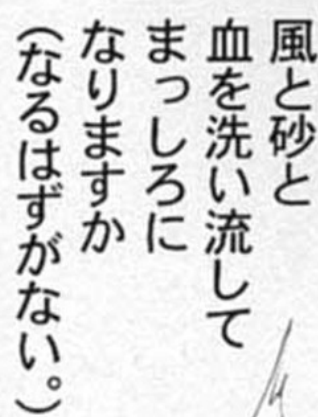 風と砂と
血を洗い流して
まっしろに
なりますか
（なるはずがない。）